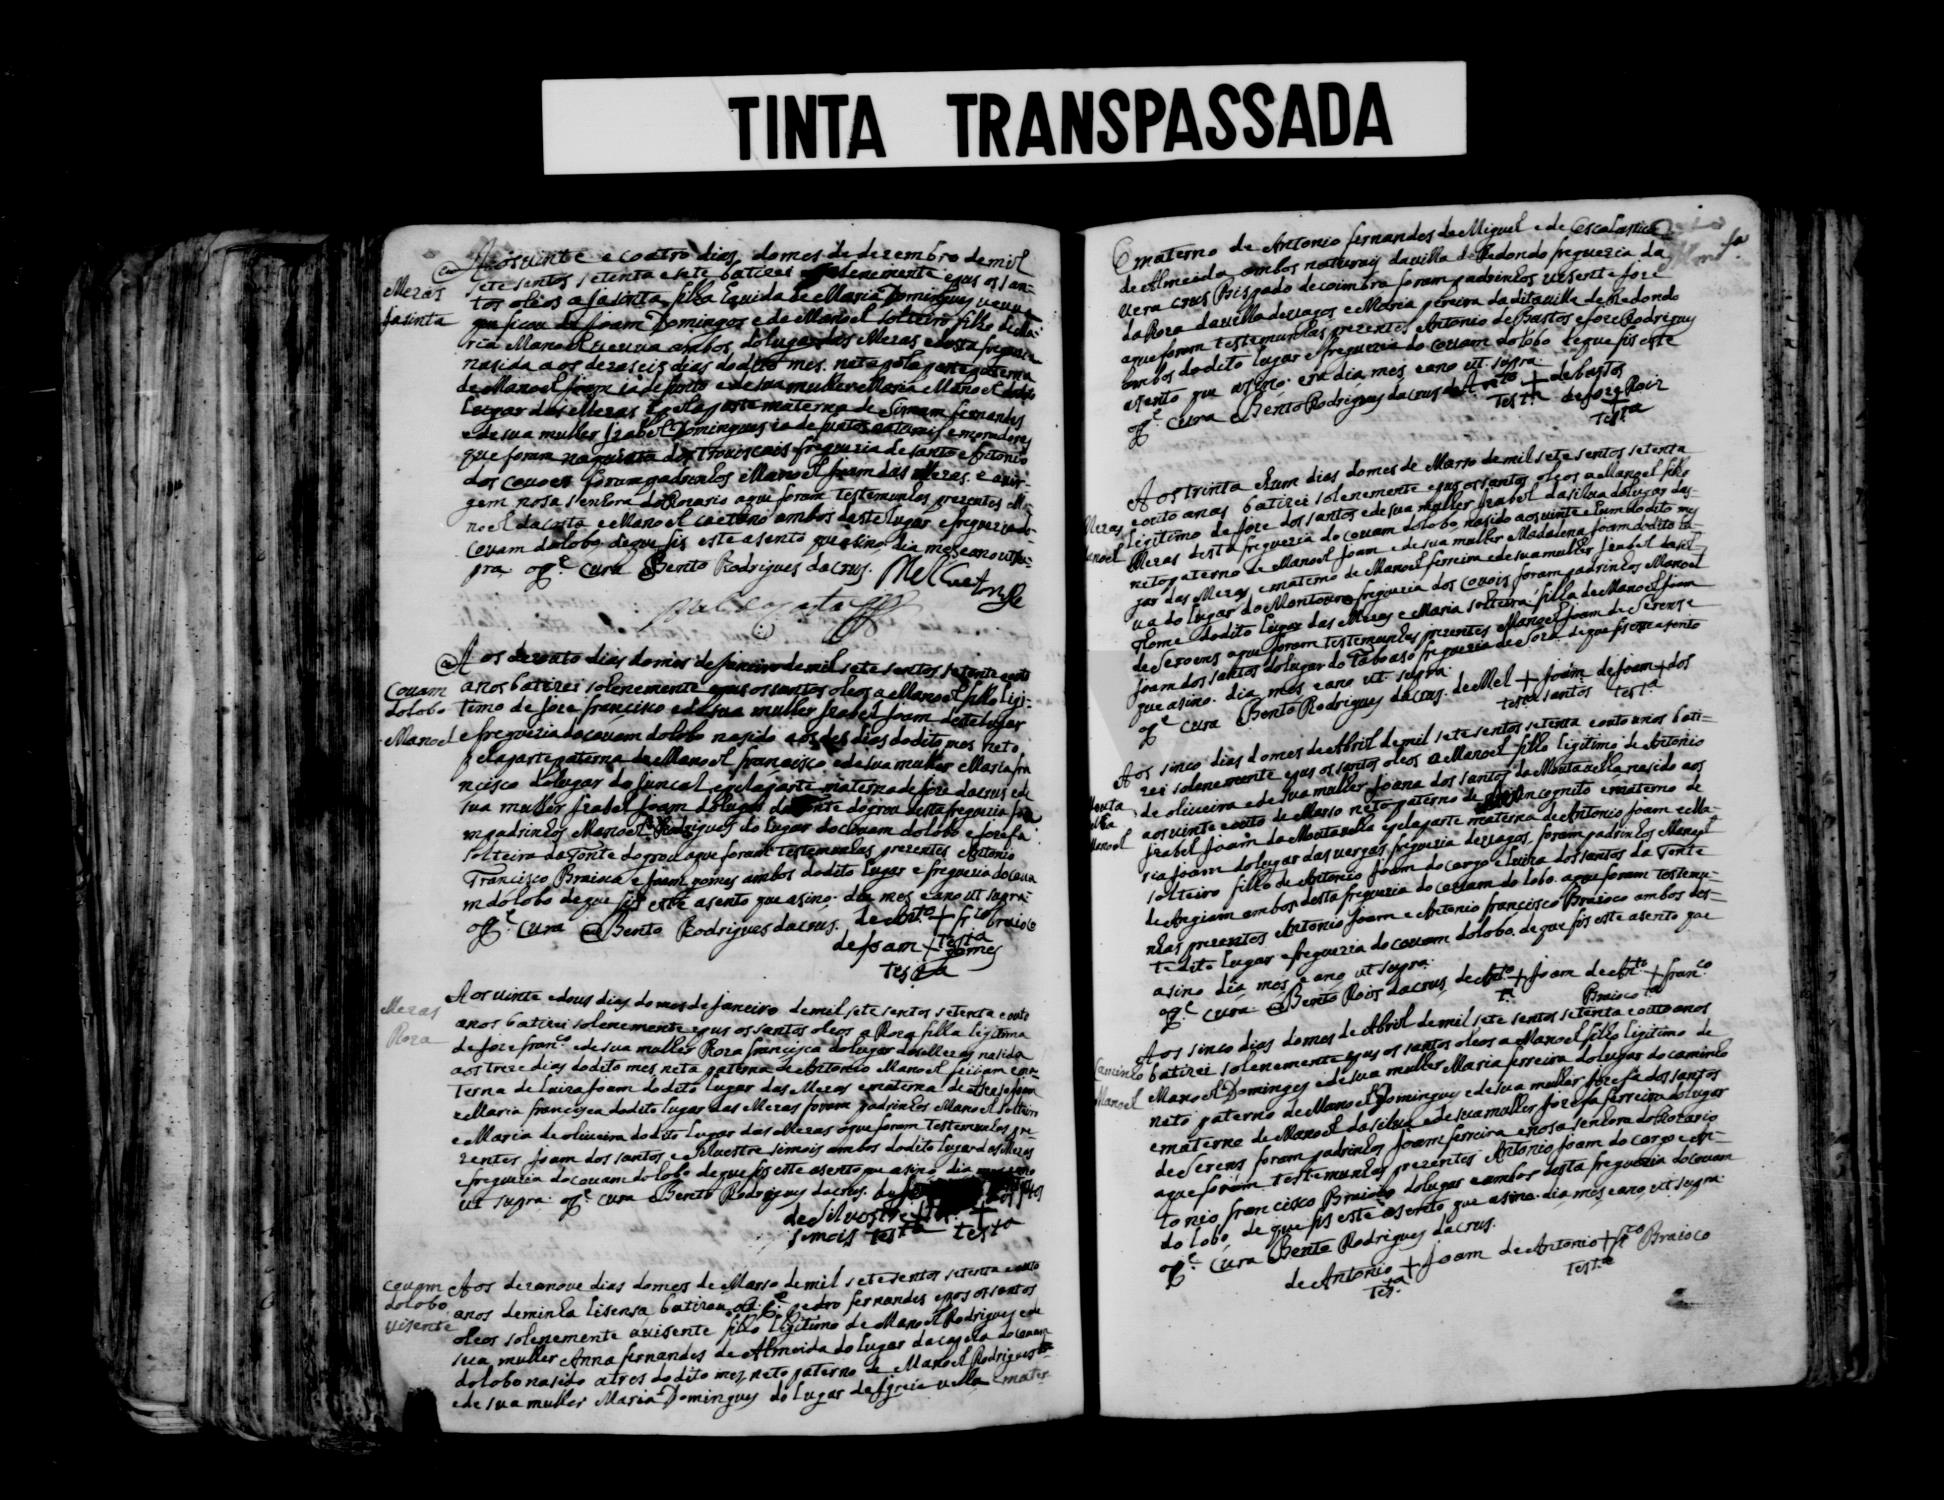 TINTA TRANSPASSADA
Aos vinte e coatro dias do mes de dezembro de mil
Mezas
sete sentos setenta e sete batizei solenemente e pus os san-
Jasinta
tos olios a Jasinta filla havida de Maria Domingues veuva
que ficou de Joam Domingos e de Manoel solteiro filho de Ma-
ria Manoel veuva ambos do lugar das Mezas desta freguezia
nasida aos dezaseis dias do dito mes neta pela parte paterna
de Manoel Joam ia defunto e de sua muller Maria Manoel do dito
Lugar das Mezas e pela parte materna de Simam fernandes
e de sua muller Izabel Domingues ia defuntos naturais e moradores
que foram na quinta dos Troviscais freguezia de santo Antonio
dos covoes foram padrinhos Manoel Joam das Mezas e a vir-
gem nosa senhora do Rozario a que foram testemunhas prezentes Ma-
noel da costa e Manoel caetano ambos deste lugar e freguezia do
Covam do lobo de que fis este asento que asino dia mes e ano ut su-
pra o P.e Cura Bento Rodrigues da crus.
Aos dezoato dias do mes de Janeiro de mil sete sentos setenta e outo
Covam
do lobo
anos batizei solenemente e pus os santos oleos a Manoel fillo ligi-
timo de Joze francisco e de sua muller Izabel Joam deste lugar
Manoel
e freguezia do covam do lobo nasido aos des dias do dito mes neto
pela parte paterna de Manoel francisco e de sua muller Maria fra
ncisco do lugar do Juncal e pela parte materna de Joze da crus e de
sua muller Izabel Joam do lugar da fonte do grou desta freguezia fora
m padrinhos Manoel Rodrigues do lugar do covam do lobo e Jozefa
solteira da Fonte do grou a que foram testemunhas prezentes Antonio
Francisco Braioca e Joam gomes ambos do dito lugar e freguezia do cova
m do lobo de que fis este asento que asino dia mes e ano ut supra
o P.e Cura Bento Rodrigues da crus. de Ant.o + fr.co braioco
de Joam + gomes
test.a
Mezas
Roza
Aos vinte e dous dias do mes de Janeiro de mil sete sentos setenta e outo
anos batizei solenemente e pus os santos oleos a Roza filla legitima
de Joze fran.co e de sua muller Roza francisca do lugar das Mezas nasida
aos treze dias do dito mes neta paterna de Antonio Manoel
terna de Luiza Joam do dito lugar das Mezas e materna de
e Maria francisca do dito lugar das Mezas foram padrinhos Manoel solteiro
e Maria de oliveira do dito lugar das Mezas a que foram testemunhas pre-
zentes Joam dos santos e Silvestre simois ambos do dito lugar das Mezas
e freguezia do covam do lobo de que fis este asento que asino dia mes e ano
ut supra o P.e cura Bento Rodrigues da crus.
de Silvestre
simois test.a test.a
covam
do lobo
visente
Aos dezanove dias do mes de Marso de mil sete sentos setenta e outo
anos de minha lisensa batizou o P.e pedro fernandes e pos os santos
oleos solenemente a visente fillo legitimo de Manoel Rodrigues e de
sua muller Anna fernandes de Almeida do lugar da capela do covam
do lobo nasido a tres do dito mes neto paterno de Manoel Rodrigues
e de sua muller Maria Domingues do lugar de Igreia vella mater-
E materno de Antonio fernandes de Miguel e de Escolastica
de Almeida ambos naturais da villa de Redondo freguezia da
vera crus Bispado de coimbra foram padrinhos visente Joze
da Roza da villa de vagos e Maria pereira da dita villa de Redondo
a que foram testemunhas prezentes Antonio de Bastos e Joze Rodrigues
ambos do dito lugar e freguezia do covam do lobo de que fis este
asento que asino era dia mes e ano ut supra
o P.e cura Bento Rodrigues da crus de Ant.o + de bastos
test.a de Joze Roiz
test.a
Aos trinta e hum dias do mes de Marso de mil sete sentos setenta
Mezas
e outo anos batizei solenemente e pus os santos oleos a Manoel fillo
Manoel
Ligitimo de Joze dos santos e de sua muller Izabel da silva do lugar das
Mezas desta freguezia do covam do lobo nasido aos vinte e hum do dito mes
neto paterno de Manoel Joam e de sua muller Madalena Joam do dito lu-
gar das Mezas e materno de Manoel ferreira e de sua muller Izabel da sil-
va do lugar do Montouro freguezia dos covois foram padrinhos Manoel
Thome do dito lugar das Mezas e Maria solteira filla de Manoel Joam
de Seroens a que foram testemunhas prezentes Manoel Joam de Serens e
Joam dos santos do lugar do Taboaso freguezia de Soza de que fis este asento
que asino dia mes e ano ut supra
o P.e cura Bento Rodrigues da crus. de M.el + Joam de Joam + dos
test.a santos test.a
Aos sinco dias do mes de Abril de mil sete sentos setenta e outo anos bati-
zei solenemente e pus os santos oleos a Manoel fillo ligitimo de Antonio
Manoel
de oliveira e de sua muller Joana dos santos da Moutavella nasido aos
aos vinte e outo de Marso neto paterno de incognito e materno de
Izabel Joam da Moutavella e pela parte materna de Antonio Joam e Ma-
ria Joam do lugar das vergas freguezia de vagos foram padrinhos Manoel
solteiro fillo de Antonio Joam do corgo e Luiza dos santos da Fonte
de Angiam ambos desta freguezia do covam do lobo a que foram testemu-
nhas prezentes Antonio Joam e Antonio francisco Braioco ambos des-
te dito lugar e freguezia do covam do lobo de que fis este asento que
asino dia mes e ano ut supra
o P.e cura Bento Rois da crus de Ant.o + Joam de Ant.o + fran.co
Braioco t.a
Aos sinco dias do mes de Abril de mil sete sentos setenta e outo anos
Caminho
batizei solenemente e pus os santos oleos a Manoel fillo ligitimo de
Manoel
Manoel Domingues e de sua muller Maria ferreira do lugar do caminho
neto paterno de Manoel Domingues e de sua muller Jozefa dos santos
e materno de Manoel da silva e de sua muller Jozefa ferreira do lugar
de Serens foram padrinhos Joam ferreira e nosa senhora do Rozario
a que foram testemunhas prezentes Antonio Joam do corgo e An-
tonio francisco Braioco do lugar e ambos desta freguezia do covam
do lobo de que fis este asento que asino dia mes e ano ut supra
o P.e Cura Bento Rodrigues da crus.
de Antonio + Joam de Antonio + fr.co Braioco
tes.a test.a